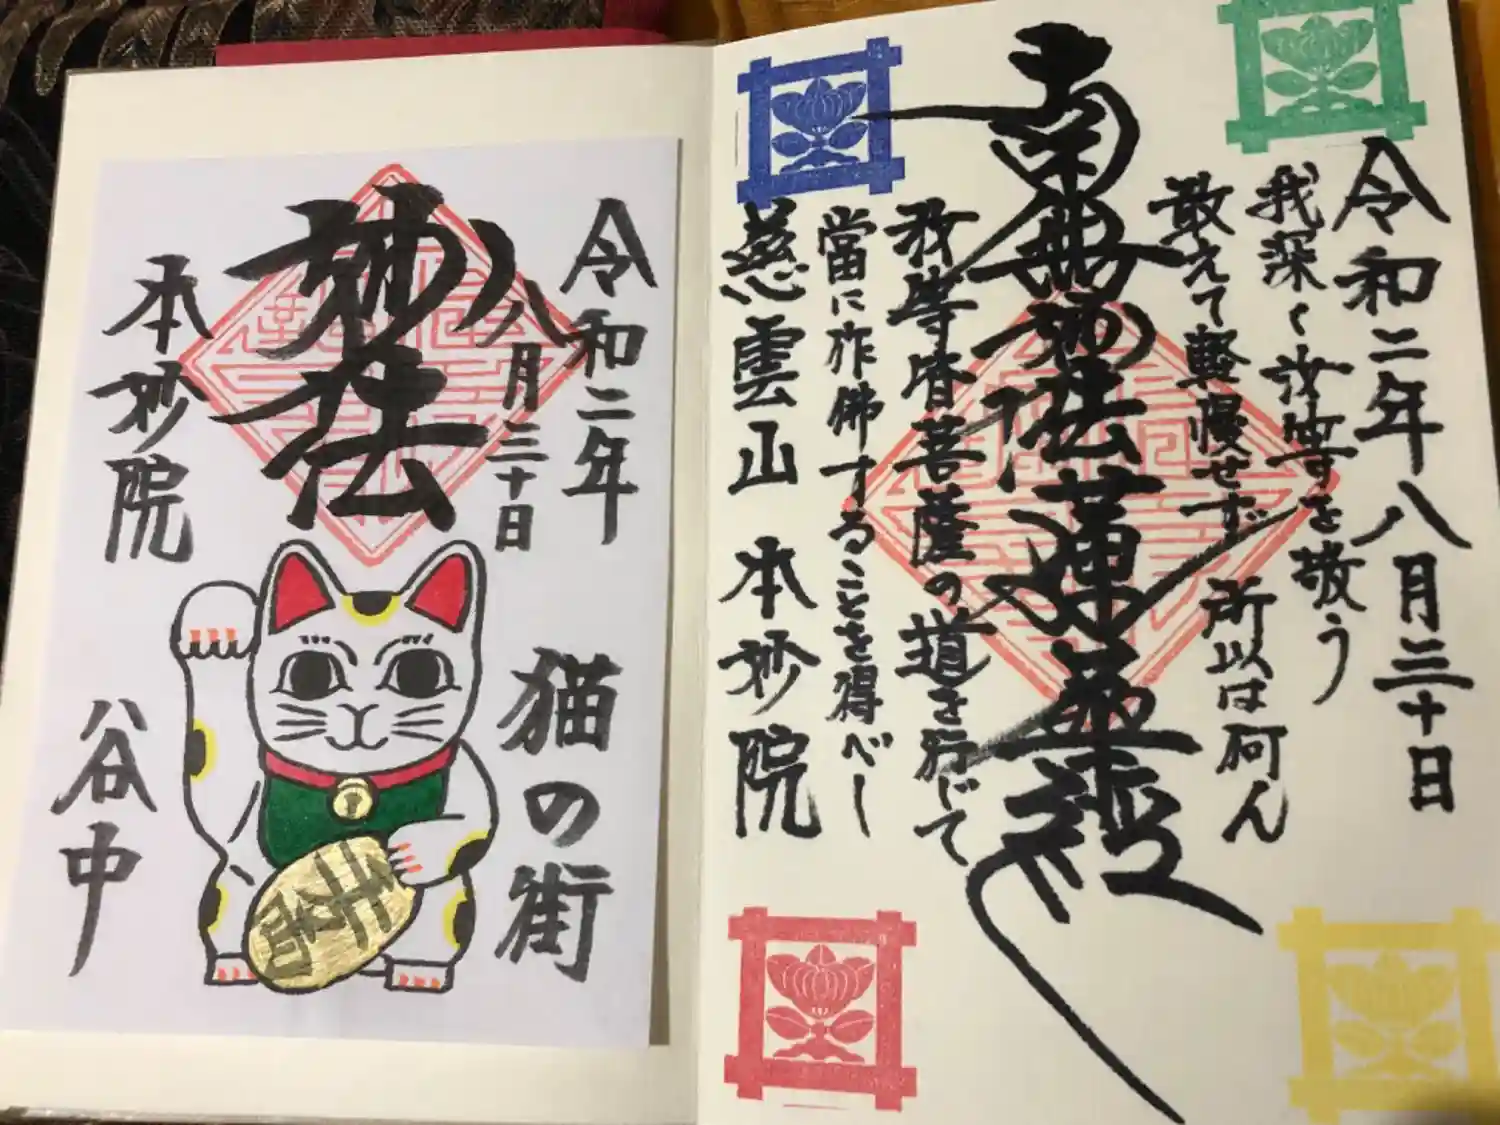 令和二年八月三十日
我深く汝等を敬う
敢えて軽慢せず 所以は何ん
南無妙法蓮華経
我等皆菩薩の道を行じて
當に作佛することを得べし
慈雲山 本妙院
令和二年
八月三十日
妙法
本妙院
猫の街
谷中